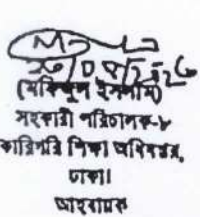 (মফিজুল ইসলাম)
সহকারী পরিচালক-৮
কারিগরি শিক্ষা অধিদপ্তর,
ঢাকা।
আহবায়ক